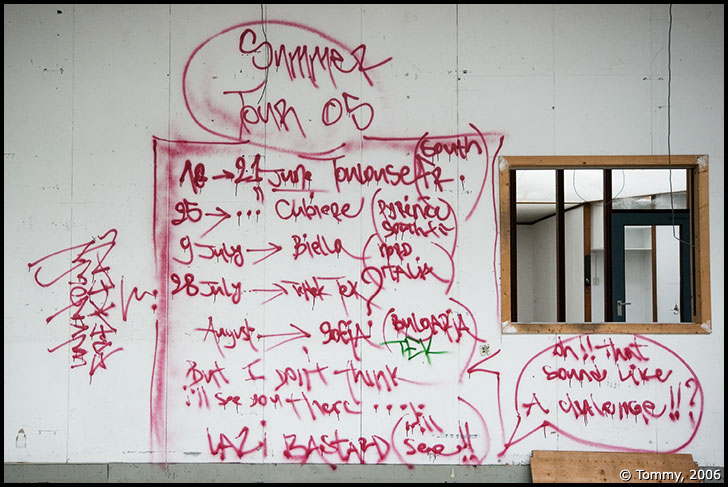 Summer
Tour 05
18 → 21 June Toulouse FR. (South)
25 → ... Cubiere (Pyrénée
9 July → Biella (NORD
ITALIA)
28 July → Tek ?
August → Sofia (BULGARIA)
TEK
But I Don't think
i'll see you there ....
LAZi BASTARD (i'll
see!!)
Ah!! that
sound like
A challenge!!?
© Tommy, 2006